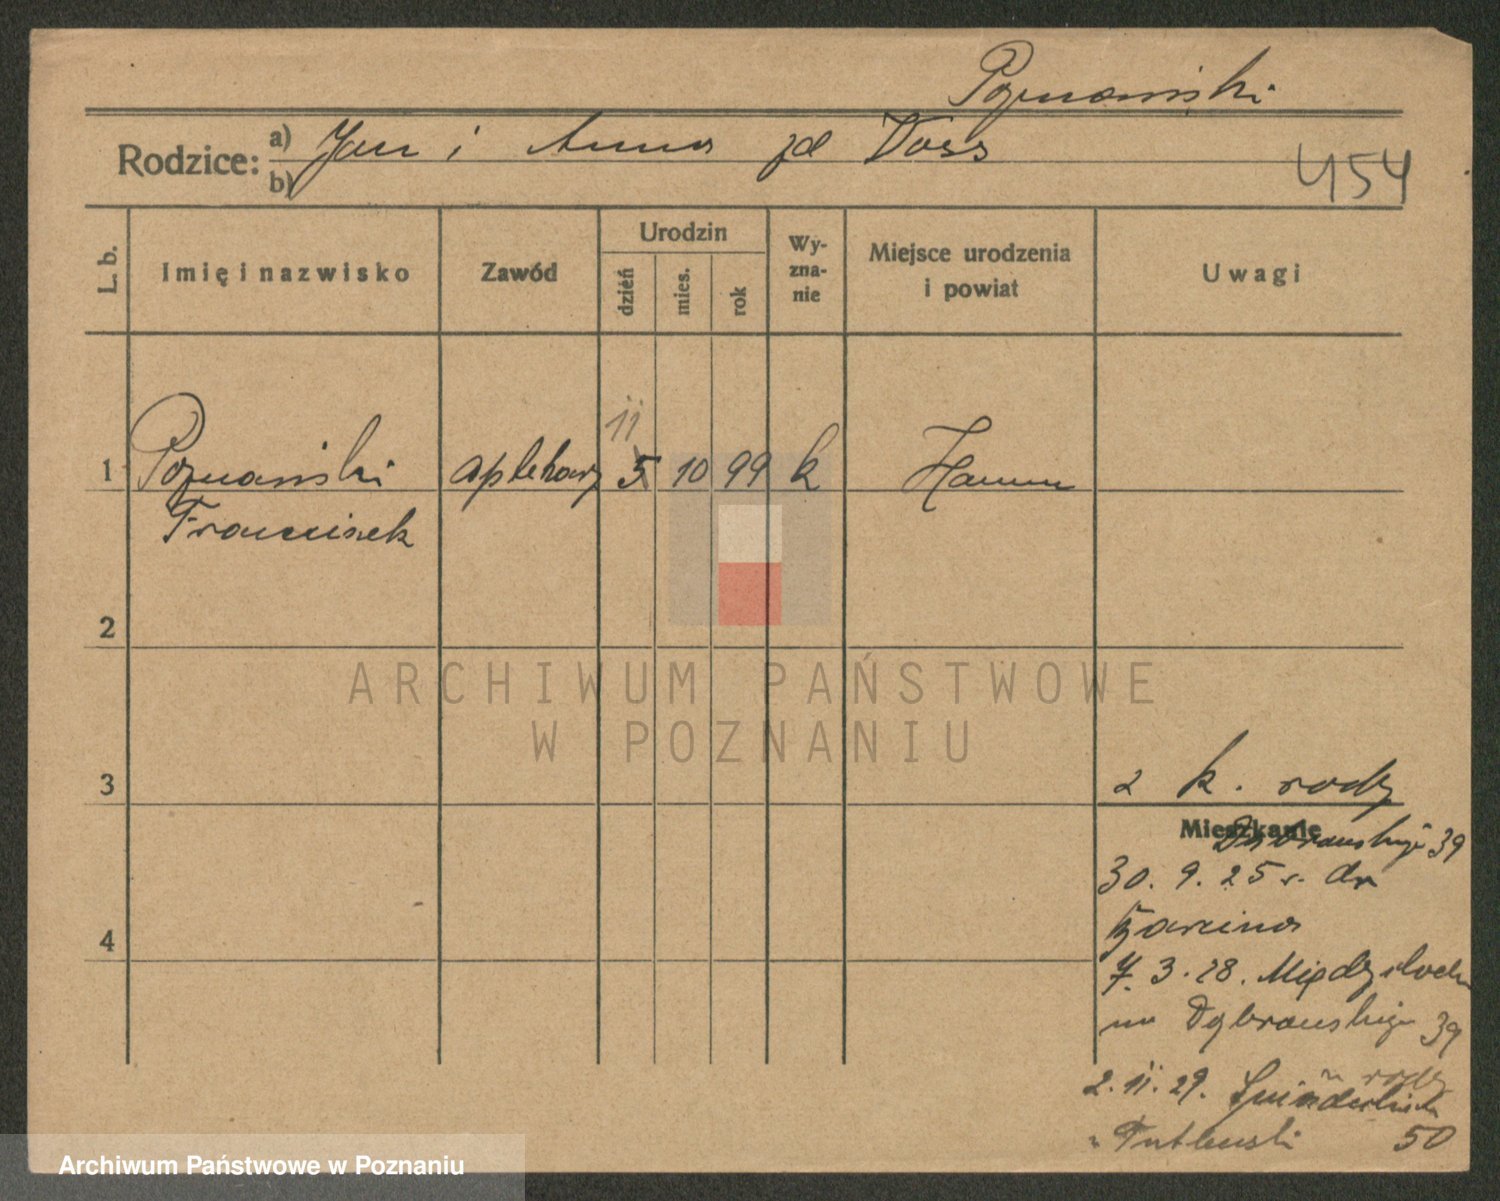 Poznański
Rodzice: a) Jan i Anna zd Voss
b)
454
L. b.
Imię i nazwisko
Zawód
Urodzin
dzień
mies.
rok
Wy-
zna-
nie
Miejsce urodzenia
i powiat
Uwagi
11
1 Poznański aptekarz 5 10 99 k Hamm
Franciszek
2
ARCHIWUM PAŃSTWOWE
W POZNANIU
3
z k. rodz
Mieszkanie
Dąbrowskiego 39
30. 9. 25 r. do
7. 3. 28. Międzychod
na Dąbrowskiego 39
4
2. 11. 29.
u rodz
50
Archiwum Państwowe w Poznaniu